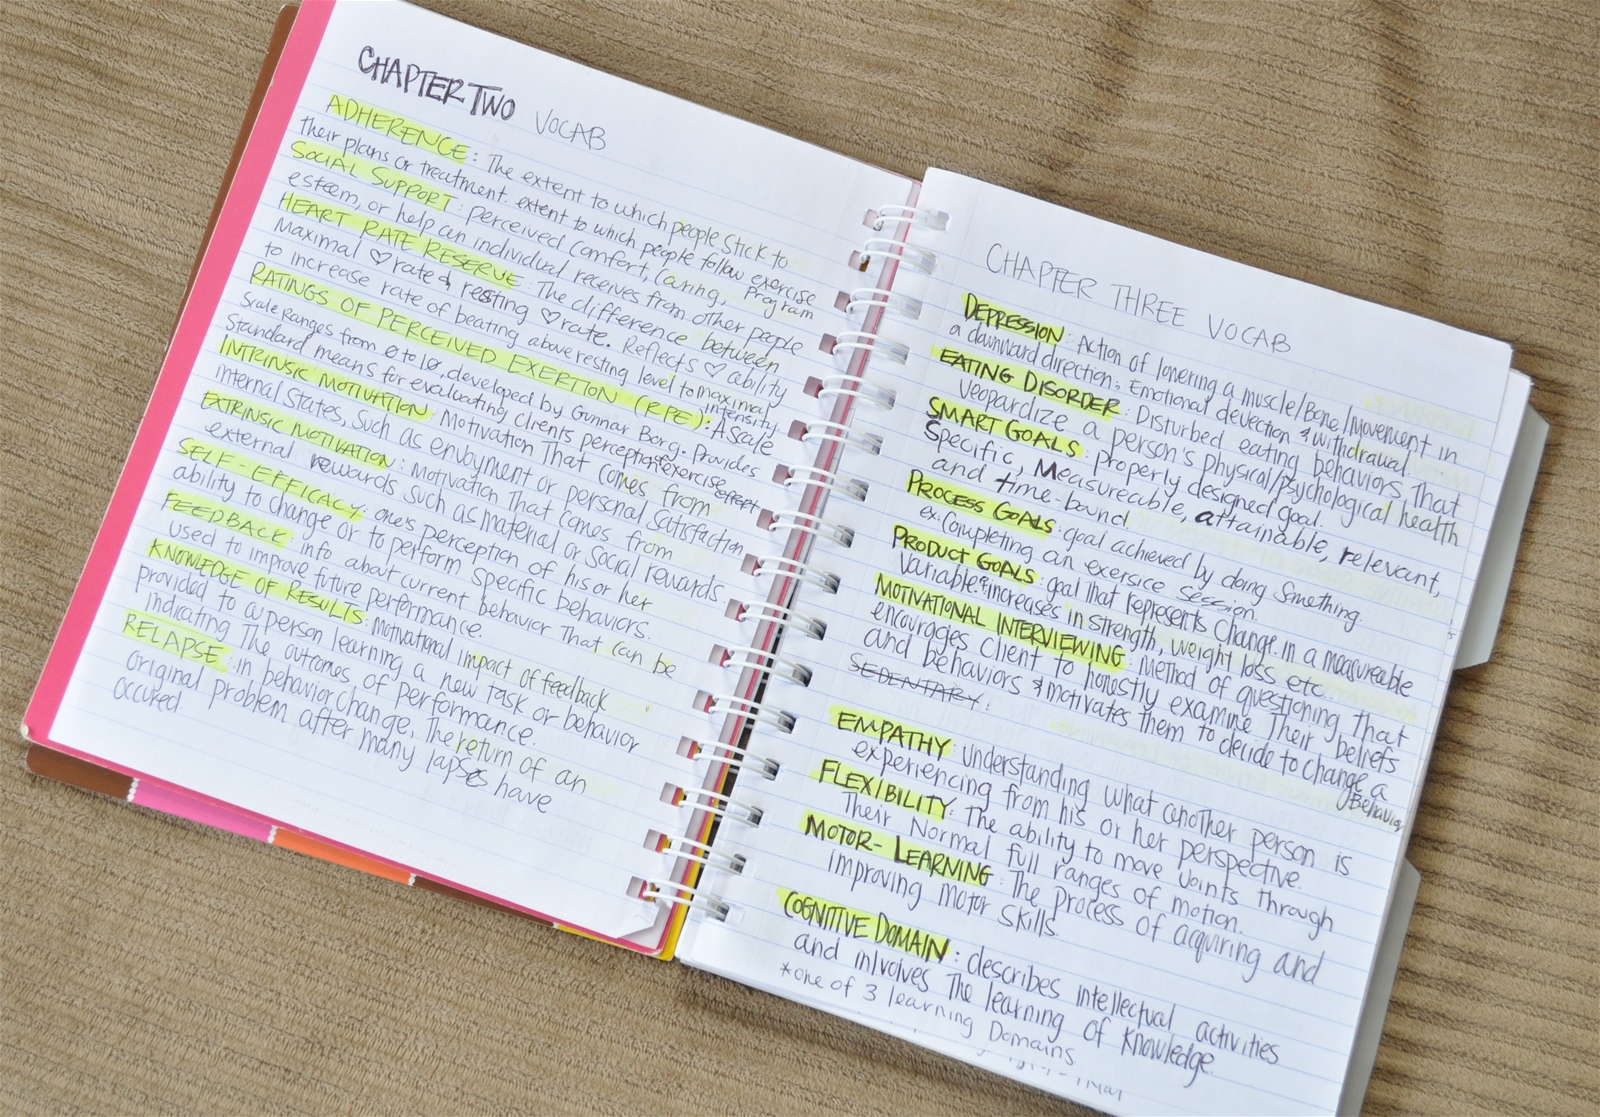 CHAPTER TWO VOCAB
ADHERENCE: The extent to which people stick to
their plans or treatment. extent to which people follow exercise
program
SOCIAL SUPPORT: perceived comfort, caring,
esteem, or help an individual receives from other people
HEART RATE RESERVE: The difference between
Maximal ♡ rate & resting ♡ rate. Reflects ♡ ability
to increase rate of beating above resting level to maximal
intensity
RATINGS OF PERCEIVED EXERTION (RPE): A scale
Scale ranges from 0 to 10, developed by Gunnar Borg. Provides
Standard means for evaluating clients perception of exercise
effort
INTRINSIC MOTIVATION: Motivation That comes from
internal states, such as enjoyment or personal satisfaction
EXTRINSIC MOTIVATION: Motivation That comes from
external rewards such as material or social rewards
SELF-EFFICACY: one's perception of his or her
ability to change or to perform specific behaviors.
FEEDBACK: info about current behavior That can be
used to improve future performance.
KNOWLEDGE OF RESULTS: motivational impact of feedback
provided to a person learning a new task or behavior
indicating The outcomes of performance.
RELAPSE: in behavior change, The return of an
original problem after many lapses have
occured
CHAPTER THREE VOCAB
DEPRESSION: Action of lowering a muscle/Bone/Movement in
a downward direction; Emotional devection & withdrawal
EATING DISORDER: Disturbed eating behaviors That
veopardize a person's physical/psychological health
SMART GOALS: properly designed goal.
Specific, Measureable, attainable, relevant,
and time-bound
PROCESS GOALS: goal achieved by doing Something.
ex: completing an exersice Session.
PRODUCT GOALS: goal that represents change in a measureable
variable: increases in strength, weight loss etc
MOTIVATIONAL INTERVIEWING: Method of questioning that
encourages client to honestly examine Their beliefs
and behaviors & motivates them to decide to change a
Behavior
SEDENTARY:
EMPATHY: understanding what another person is
experiencing from his or her perspective.
FLEXIBILITY: The ability to move Joints Through
Their Normal full ranges of motion.
MOTOR-LEARNING: The process of acquiring and
improving motor skills.
COGNITIVE DOMAIN: describes intellectual activities
and inlvolves The learning of knowledge.
*one of 3 learning Domains